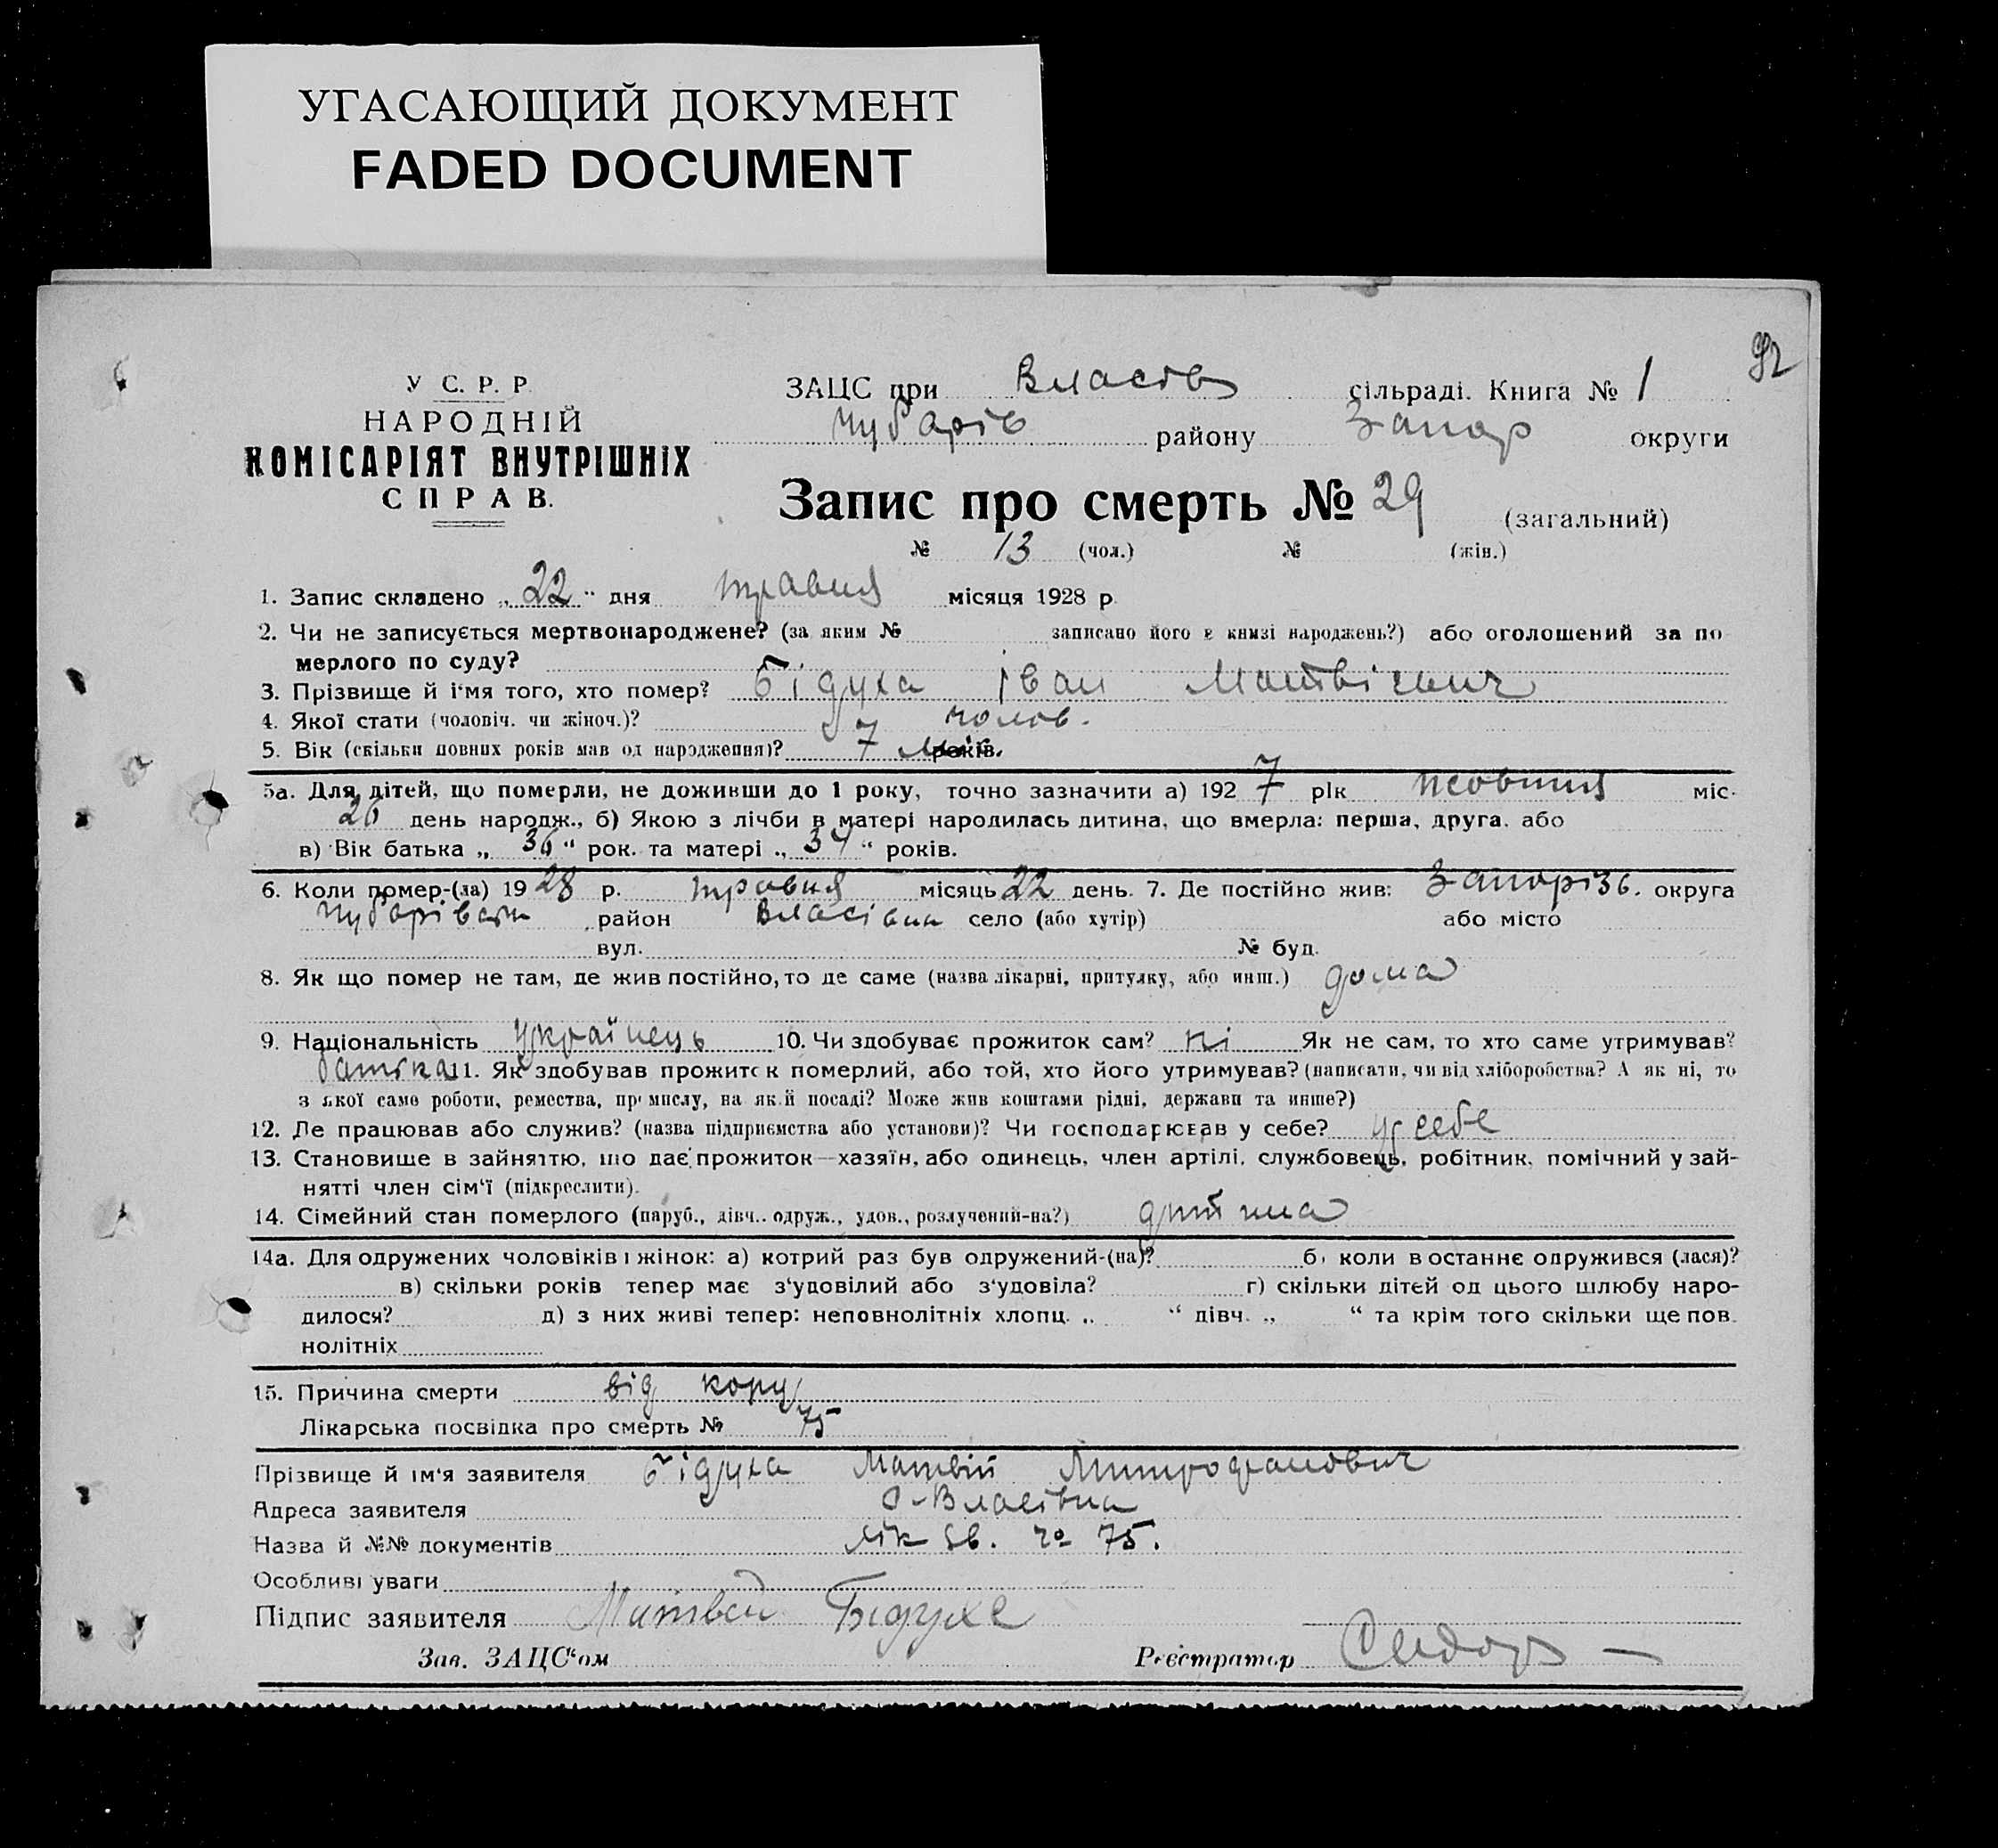 УГАСАЮЩИЙ ДОКУМЕНТ
FADED DOCUMENT
92
У С. Р. Р.
НАРОДНІЙ
КОМІСАРІЯТ ВНУТРІШНІХ
СПРАВ.
ЗАЦС при Власів сільраді. Книга № 1
Чубарів району Запор округи
Запис про смерть № 29 (загальний)
№ 13 (чол.) № (жін.)
1. Запис складено „22“ дня травня місяця 1928 р.
2. Чи не записується мертвонароджене? (за яким № записано його в книзі народжень?) або оголошений за по
мерлого по суду?
3. Прізвище й ім'я того, хто помер? Бідуха Іван Матвієвич
4. Якої стати (чоловіч. чи жіноч.)? чолов.
5. Вік (скільки повних років мав од народження)? 7 міс років.
5а. Для дітей, що померли, не доживши до 1 року, точно зазначити а) 1927 рік жовтня міс.
26 день народж., б) Якою з лічби в матері народилась дитина, що вмерла: перша, друга. або
в) Вік батька „36“ рок. та матері „34“ років.
6. Коли помер-(ла) 1928 р. травня місяць 22 день. 7. Де постійно жив: Запорізь. округа
Чубарівськ район Власівка село (або хутір) або місто
вул. № буд.
8. Як що помер не там, де жив постійно, то де саме (назва лікарні, притулку, або инш.) дома
9. Національність Українець 10. Чи здобуває прожиток сам? Ні Як не сам, то хто саме утримував?
батька 11. Як здобував прожиток померлий, або той, хто його утримував? (написати, чи від хліборобства? А як ні, то
з якої саме роботи, ремества, промислу, на якій посаді? Може жив коштами рідні, держави та инше?)
12. Де працював або служив? (назва підприємства або установи)? Чи господарював у себе? у себе
13. Становище в зайняттю, що дає прожиток—хазяїн, або одинець, член артілі, службовець, робітник, помічний у зай-
нятті член сім'ї (підкреслити).
14. Сімейний стан померлого (паруб., дівч., одруж., удов., розлучений-на?) дитина
14а. Для одружених чоловіків і жінок: а) котрий раз був одружений-(на)? б) коли в останнє одружився (лася)?
в) скільки років тепер має з'удовілий або з'удовіла? г) скільки дітей од цього шлюбу наро-
дилося? д) з них живі тепер: неповнолітніх хлопц. „ “ дівч. „ “ та крім того скільки ще пов.
нолітніх
15. Причина смерти від кору
Лікарська посвідка про смерть № 75
Прізвище й ім'я заявителя Бідуха Матвій Митрофанович
Адреса заявителя с-Власівка
Назва й №№ документів лік св. № 75.
Особливі уваги
Підпис заявителя Матвей Бідухе
Зав. ЗАЦС'ом Реєстратор